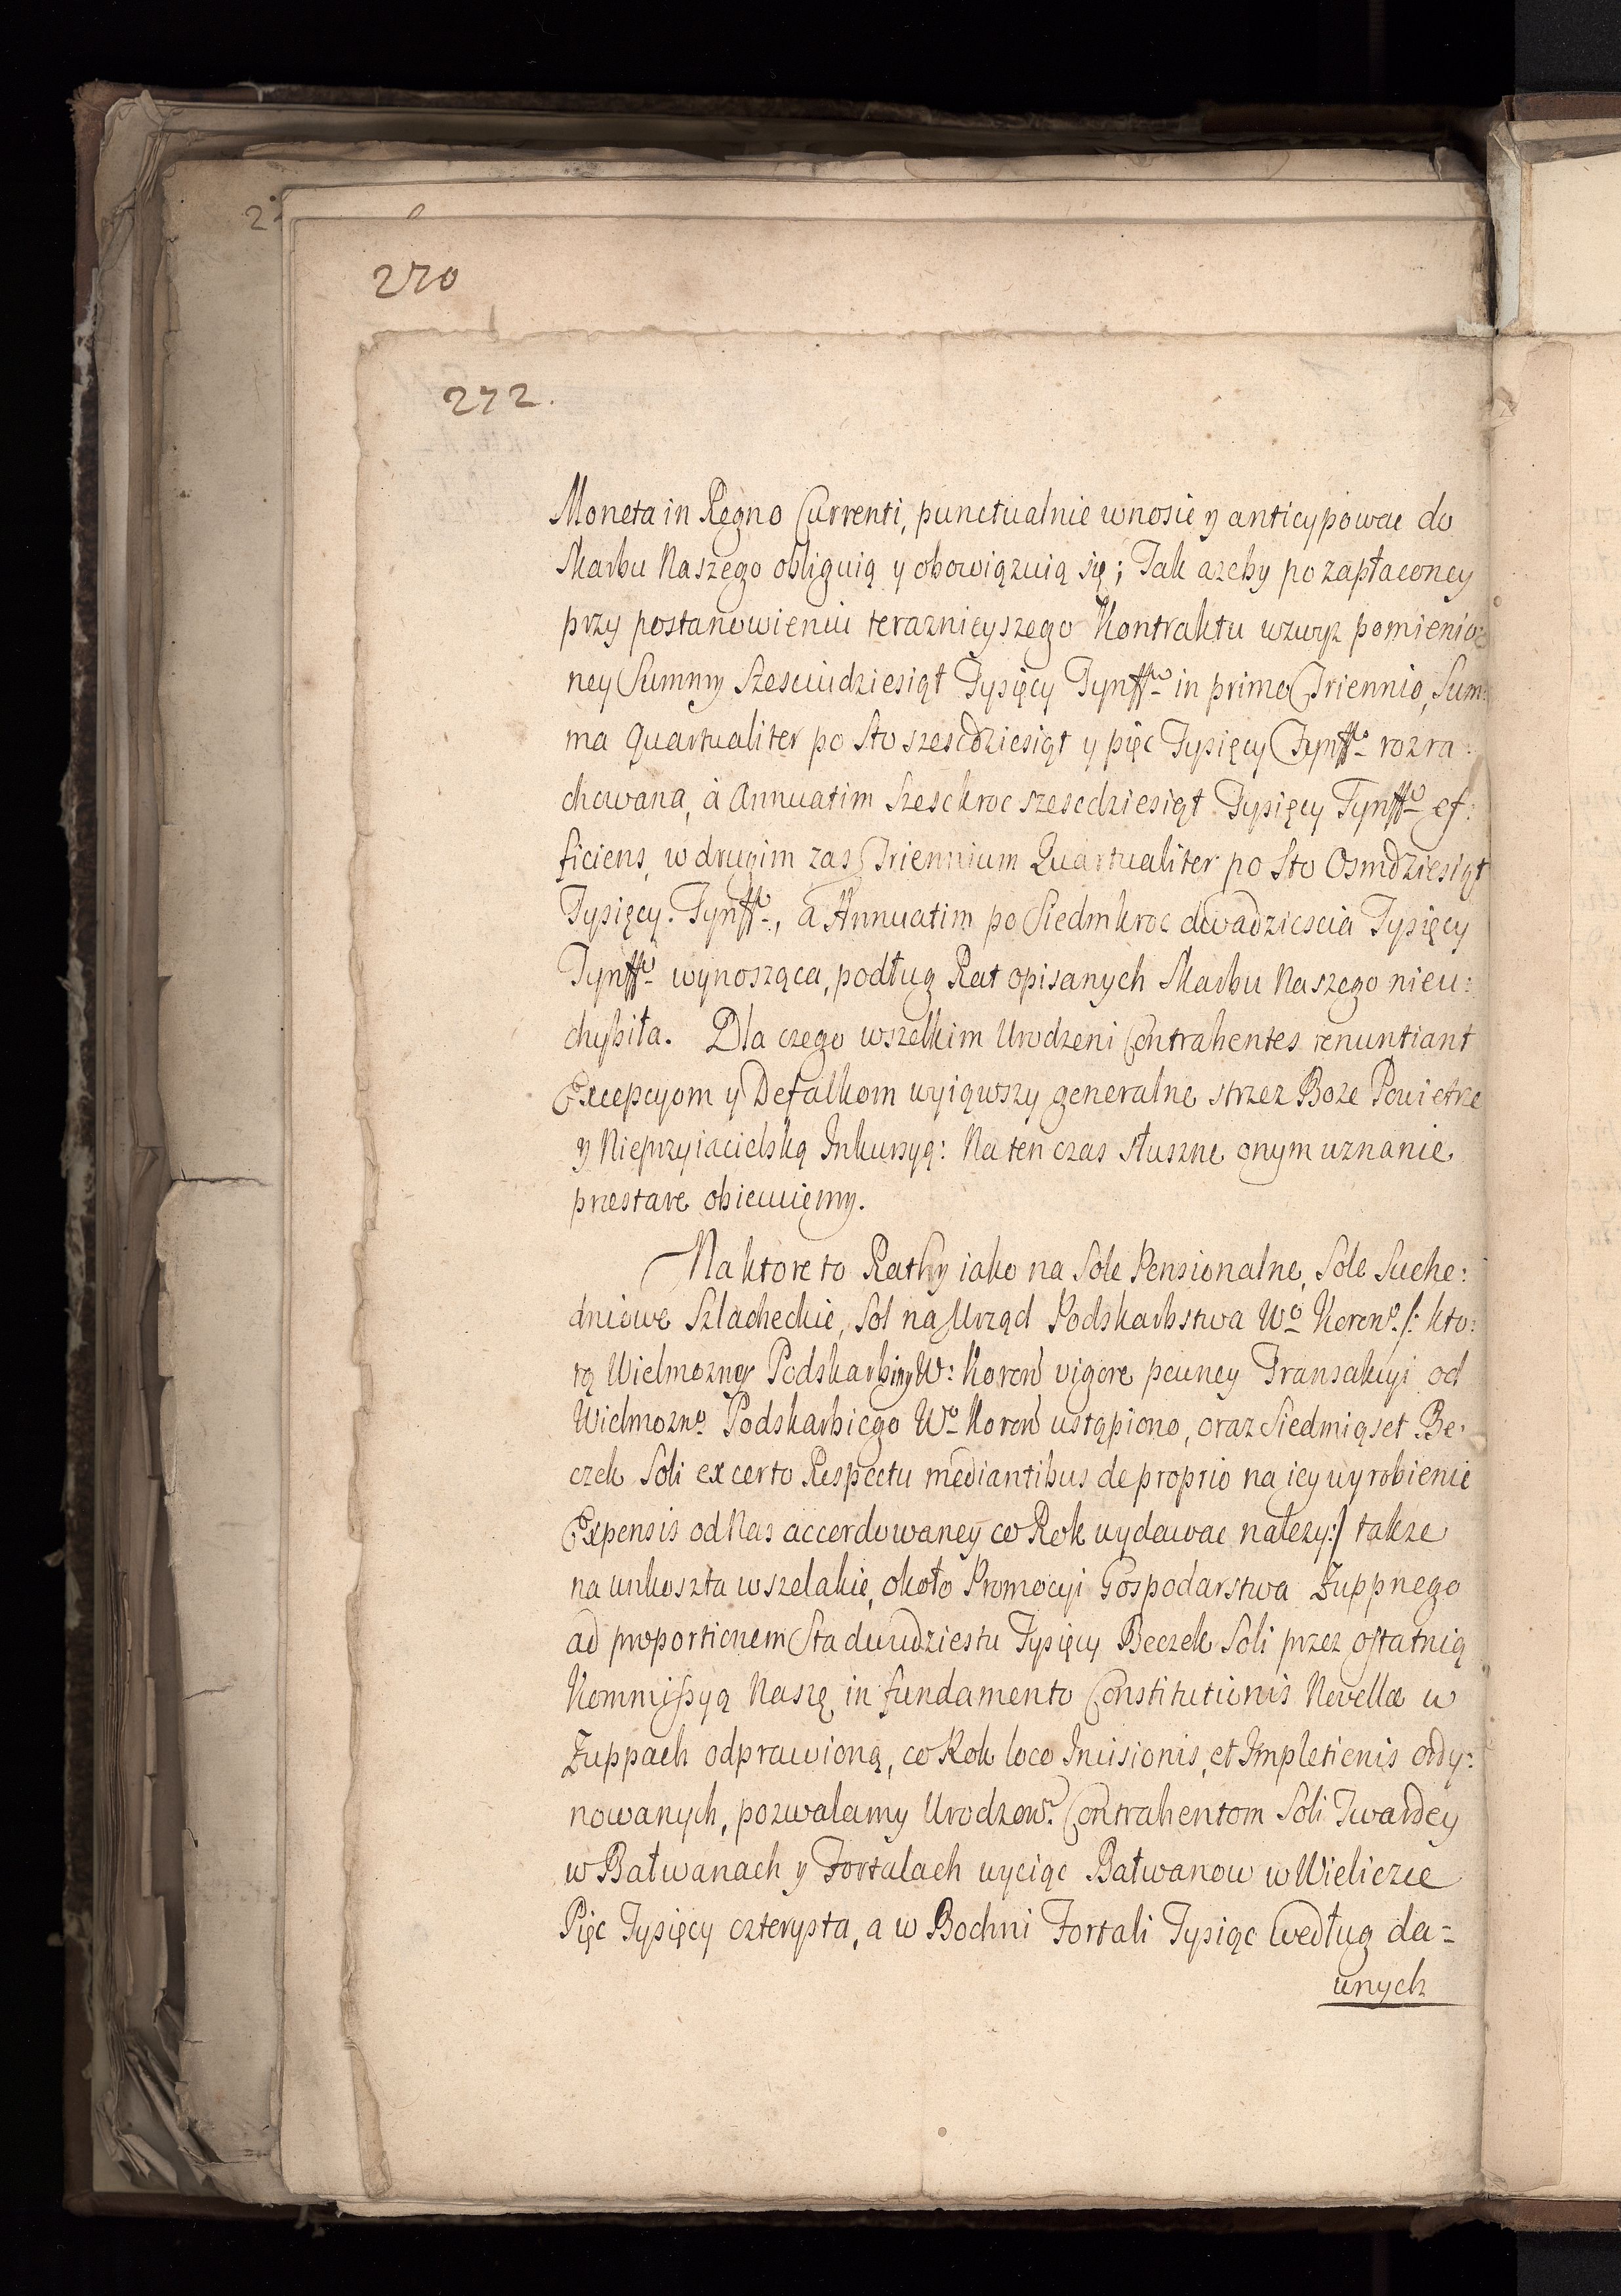 270
272.
Moneta in Regno Currenti, punctualnie wnosić y anticypować do
Skarbu Naszego obliguią y obowiązuią się; Tak azeby po zapłaconey
przy postanowieniu teraznieyszego Kontraktu wzwyz pomienio:
ney Summy Szesciudziesiąt Tysięcy Tynffow in primo Triennio, Sum:
ma Quartualiter po Sto szescdziesiąt y pięc Tysięcy Tynffow rozra:
chowana, à Annuatim Szesckroc szescdziesiąt Tysięcy Tynffow ef:
ficiens, w drugim zas Triennium Quartualiter po Sto Osmdziesiąt
Tysięcy Tynffow, a Annuatim po Siedmkroc dwadziescia Tysięcy
Tynffow wynosząca, podług Rat opisanych Skarbu Naszego nieu:
chybiła. Dla czego wszelkim Urodzeni Contrahentes renuntiant
Excepcyom y Defalkom wyiąwszy generalne strzez Boze Powietrze
y Nieprzyiacielską Inkursyą: Na ten czas słuszne onym uznanie
præstare obiecuięmy.
Na ktore to Rathy iako na Sole Pensionalne, Sole Suche:
dniowe Szlacheckie, Sol na Urząd Podskarbstwa Wo Koronº. /: kto:
rą Wielmozney Podskarbiny W: Koron vigore pewney Transakcyi od
Wielmoznº Podskarbiego Wo Koron ustąpiono, oraz Siedmiąset Be:
czek Soli ex certo Respectu mediantibus de proprio na iey wyrobienie
Expensis od Nas accordowaney co Rok wydawac nalezy:/ takze
na unkoszta wszelakie, około Promocyi Gospodarstwa Zuppnego
ad proportionem Sta dwudziestu Tysięcy Beczek Soli przez ostatnią
Kommissyą Naszę in fundamento Constitutionis Novellæ w
Zuppach odprawioną, co Rok loco Incisionis, et Impletionis ordy:
nowanych, pozwalamy Urodzonm Contrahentom Soli Twardey
w Bałwanach y Fortalach wyciąc Bałwanow w Wieliczce
Pięc Tysięcy czterysta, a w Bochni Fortali Tysiąc według da=
wnych